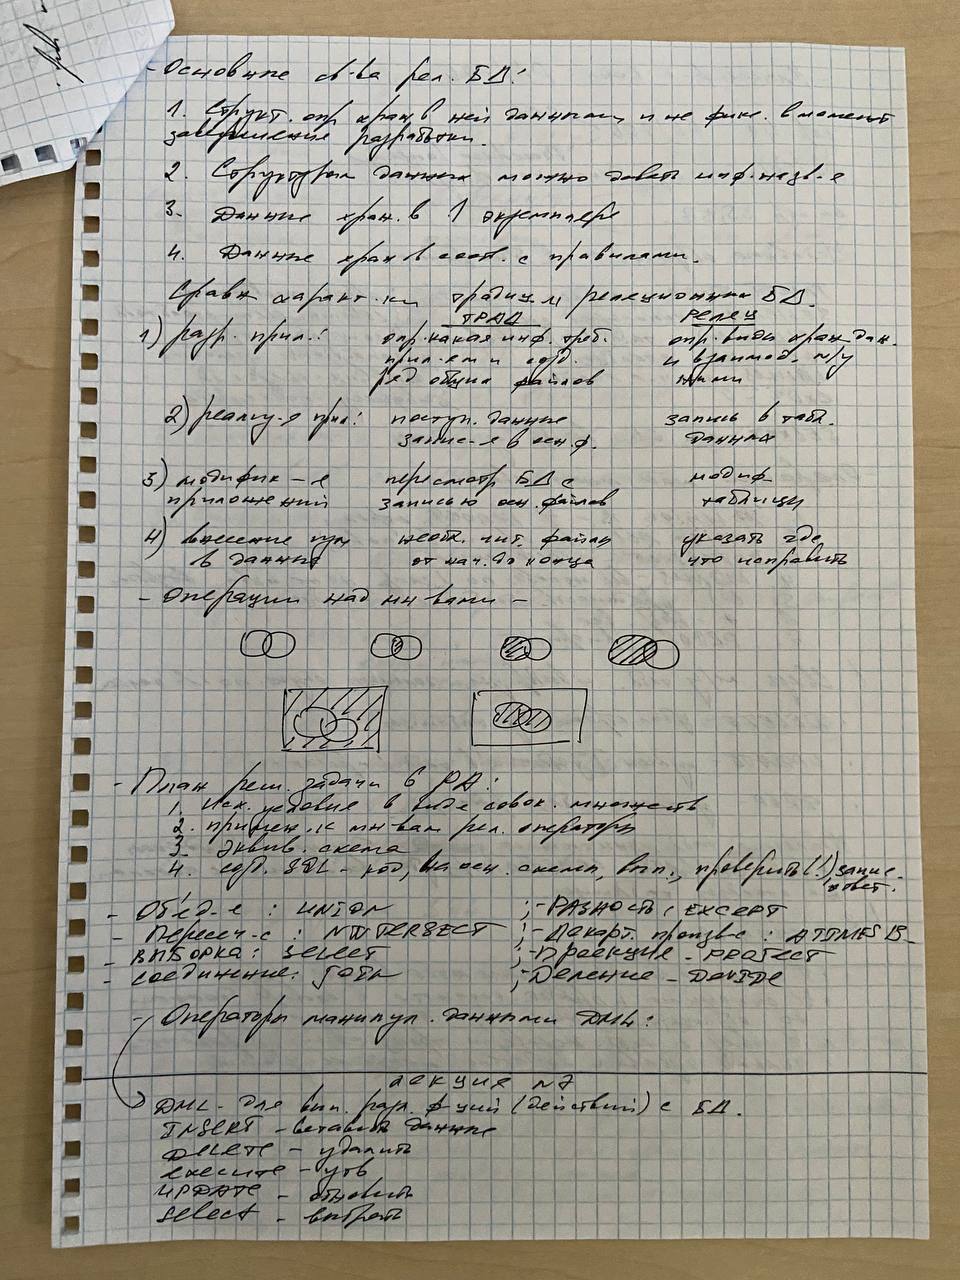 - Основные св-ва рел. БД:
1. Структ. опр хран в ней данными и не фикс. в момент
завершения разработки.
2. Структурам данных можно давать инф. назв-е
3. Данные хран. в 1 экземпляре
4. Данные хран в соот. с правилами.
Сравн характ-ки традиц и реляционных БД.
ТРАД РЕЛЕЦ
1) разр. прил.: опр. какая инф. треб. опр. виды хран. дан.
прил-ем и созд. и взаимод. м/у
ряд общих файлов ними
2) реализ-я прил: поступ. данные запись в табл.
запис-я в осн. ф. данных
3) модифик-я пересмотр БД с модиф
приложений записью осн. файлов таблицы
4) внесение изм необх. чит. файлы указать где
в данные от нач. до конца что исправить
- Операции над мн-вами -
- План реш. задачи в РА:
1. Исх. условия в виде совок. множеств
2. примен. к мн-вам рел. операторы
3. эквив. схема
4. созд. SQL - код, на осн. схемы, вып., проверить (!), запис.
ответ.
- Объед-е : UNION ;- РАЗНОСТЬ : EXCEPT
- Пересеч-е : INTERSECT ;- Декарт. произве : A TIMES B
- ВЫБОРКА: SELECT ;- Проекция - PROJECT
- соединение: JOIN ;- Деление - DEVIDE
- Операторы манипул. данными DML:
лекция N7
DML - для вып. разл. ф-ций (действий) с БД.
INSERT - вставить данные
DELETE - удалить
execute - утв
UPDATE - обновить
select - выбрать